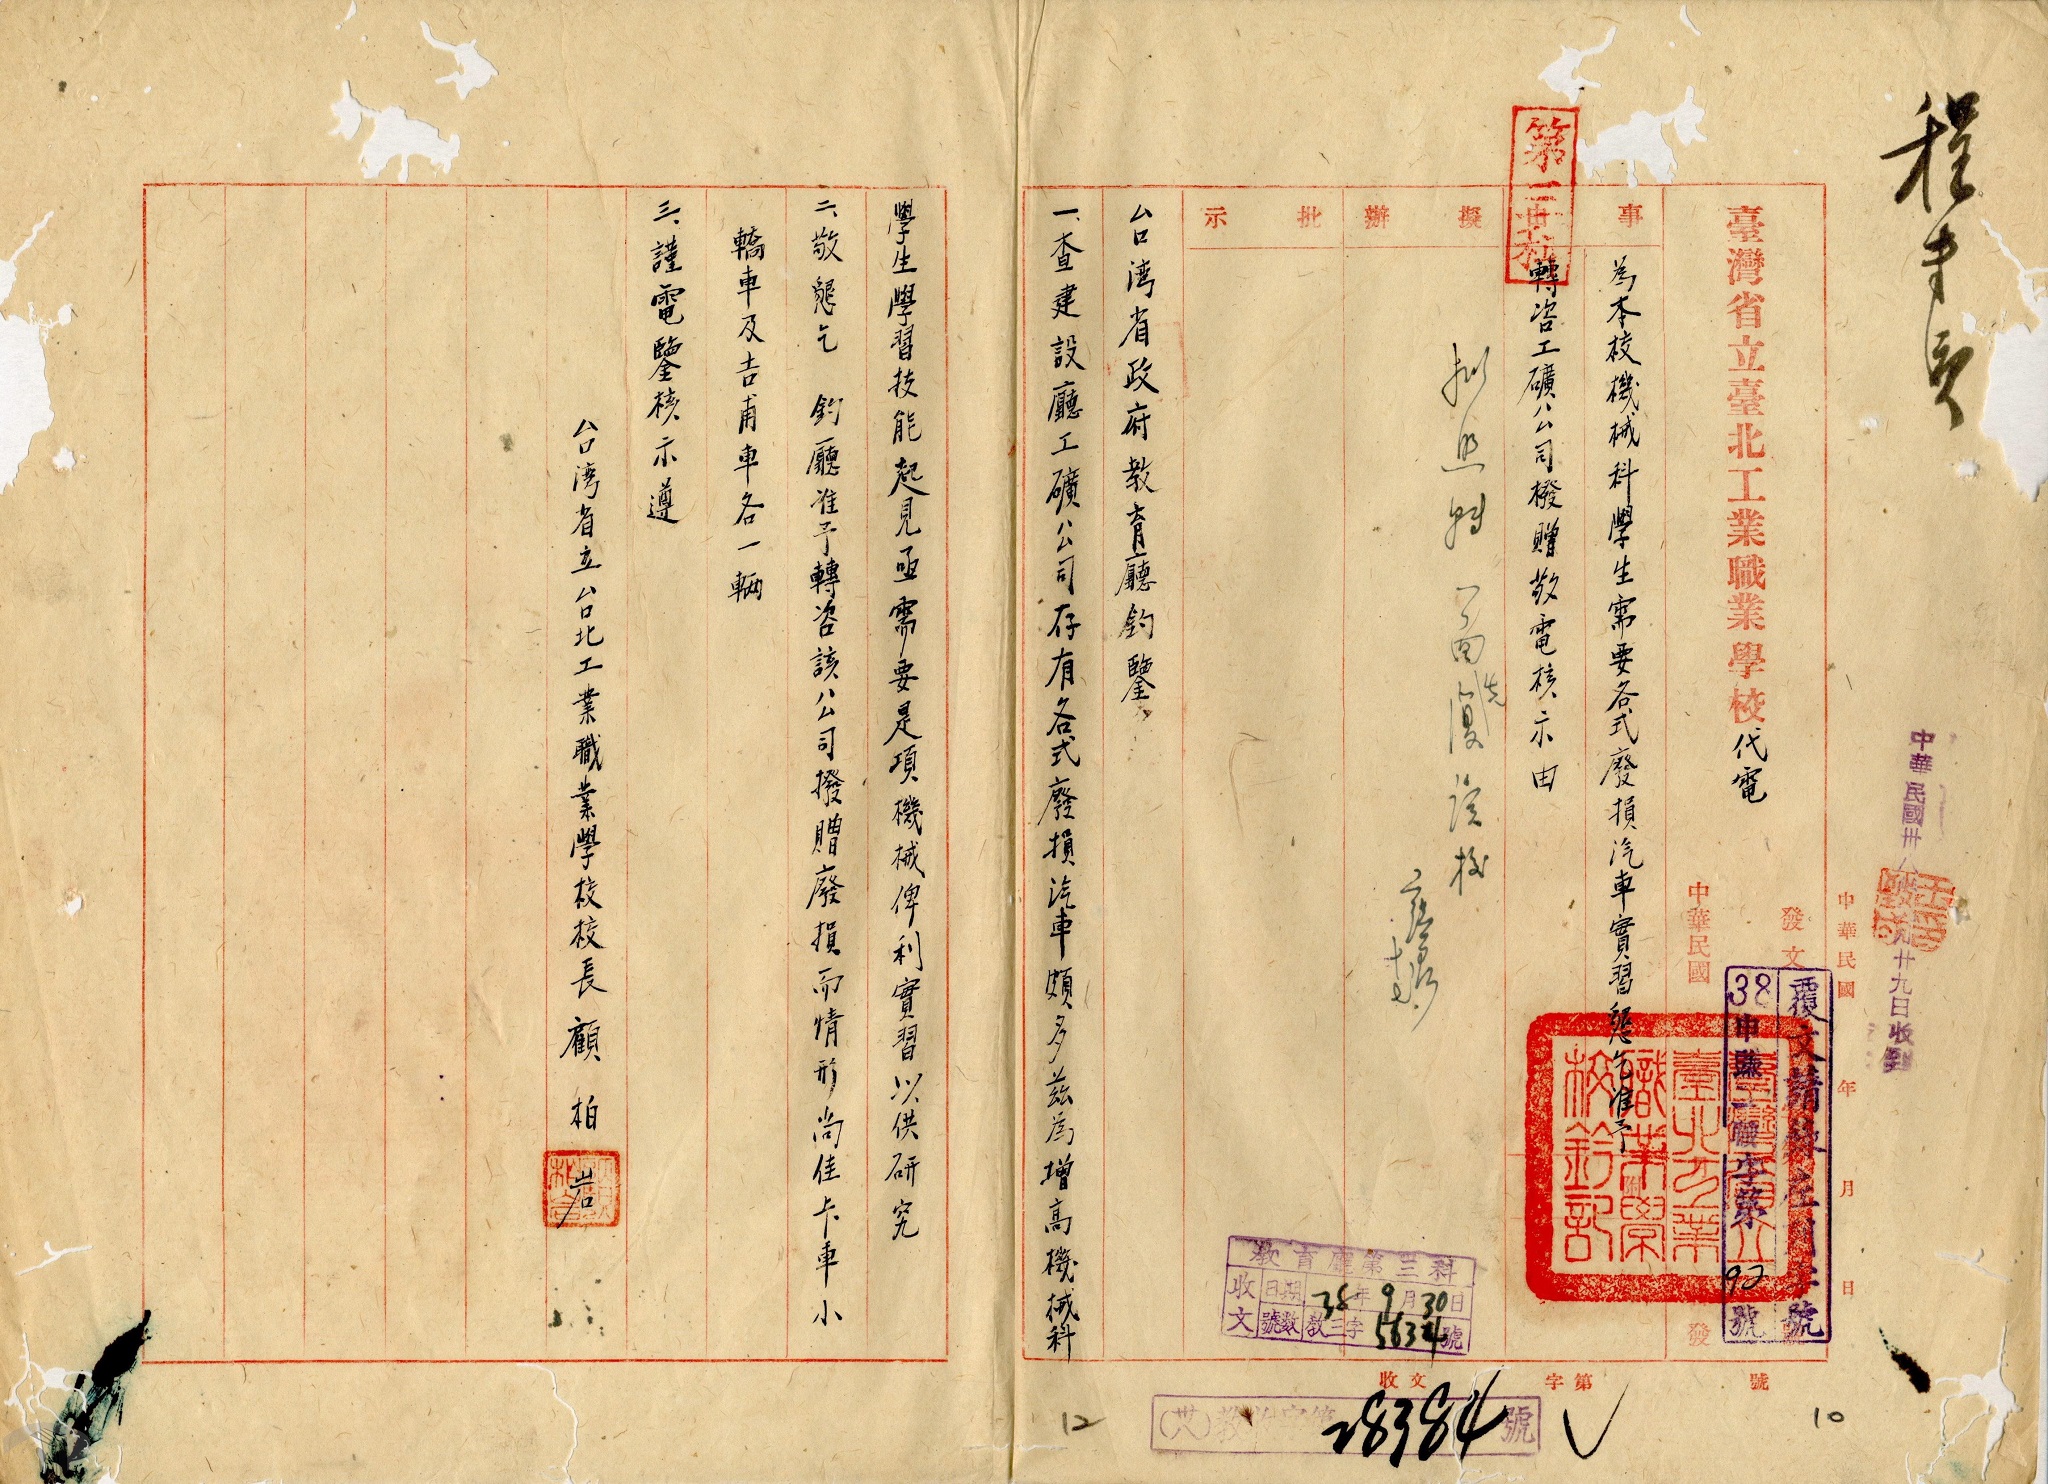 臺灣省立臺北工業職業學校代電
事
擬
辦
批
示
為本校機械科學生需要各式廢損汽車實習懇乞准予
轉咨工礦公司撥贈敬電核示由
台湾省政府教育廳鈞鑒
一、查建設廳工礦公司存有各式廢損汽車頗多茲為增高機械科
學生學習技能起見亟需要是項機械俾利實習以供研究
二、敬懇乞 鈞廳准予轉咨該公司撥贈廢損而情形尚佳卡車小
轎車及吉甫車各一輛
三、謹電鑒核示遵
台湾省立台北工業職業學校校長 顧柏岩
中華民國 年 月 日
中華民國
發文
發
覆文請註明 號
38申 字第92號
臺灣省立臺北工業職業學校鈐記
教育廳第三科
收文
日期 38年9月30日
號數 教三字5634號
收文 字第 號
28384號
10
12